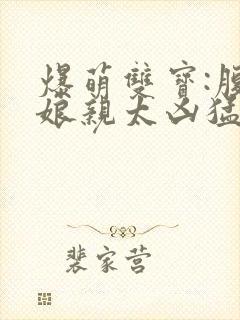 爆萌雙寶:腹
娘親太凶猛
裴家营